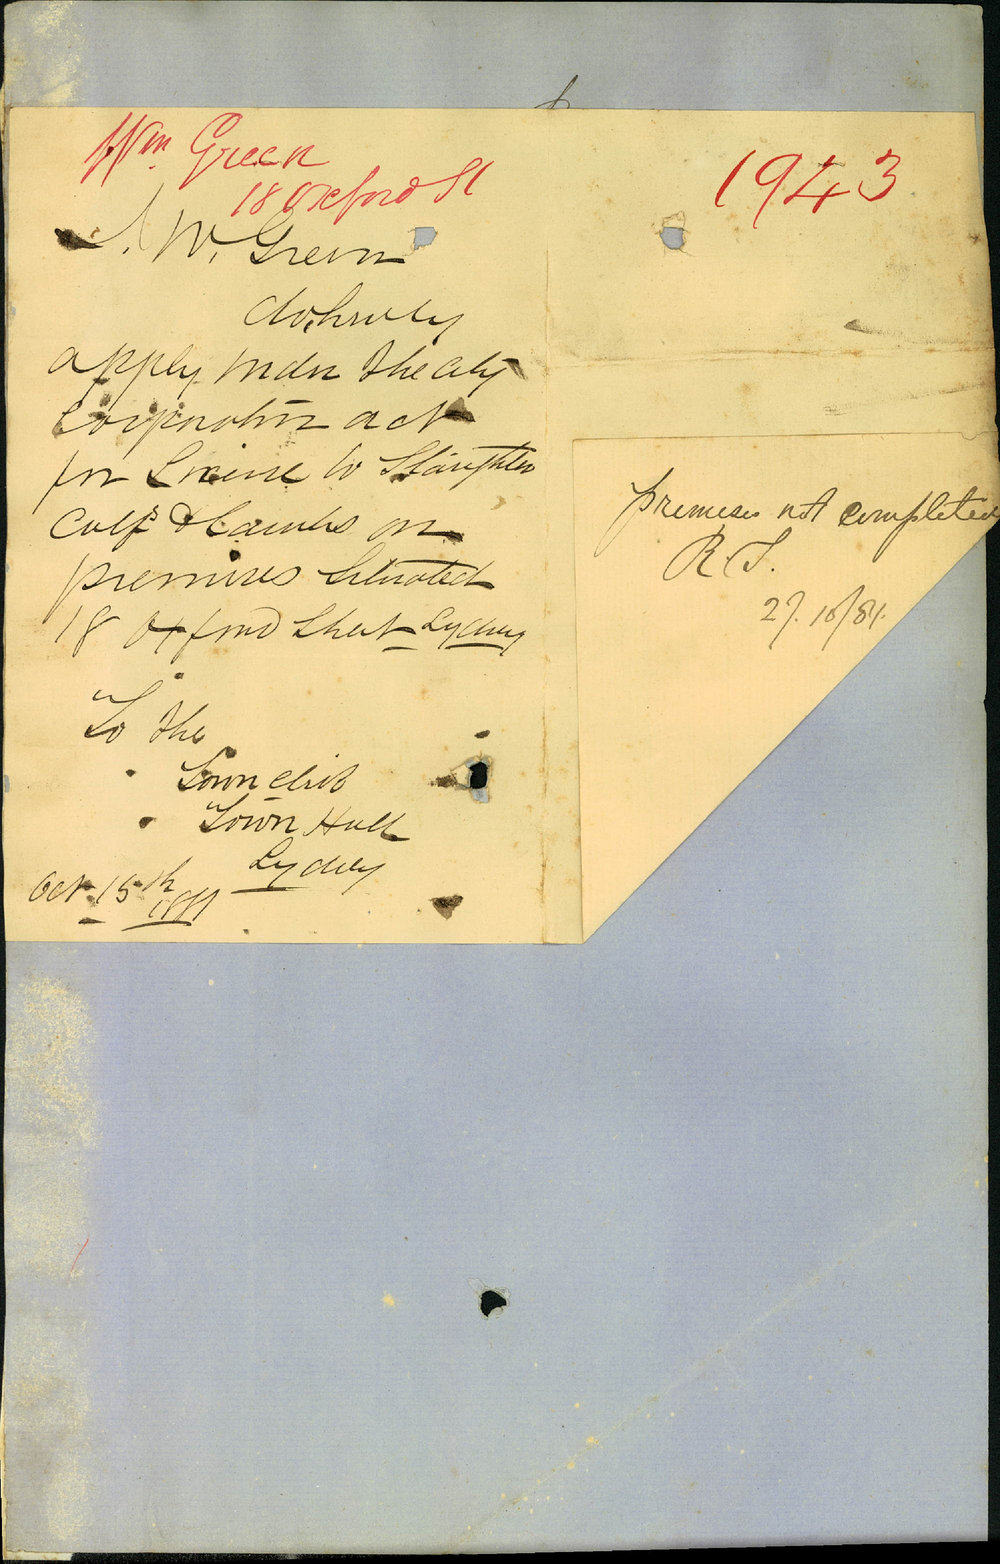 Wm Green
18 Oxford St
1943
I. W. Green
do hereby
apply under the City
Corporation act
for License to Slaughter
Calfs & Lambs on
premises Situated
18 Oxford Street Sydney
To the
Town Clerk
Town Hall
Sydney
Oct 15th
premises not completed
R. S.
27.10/81.